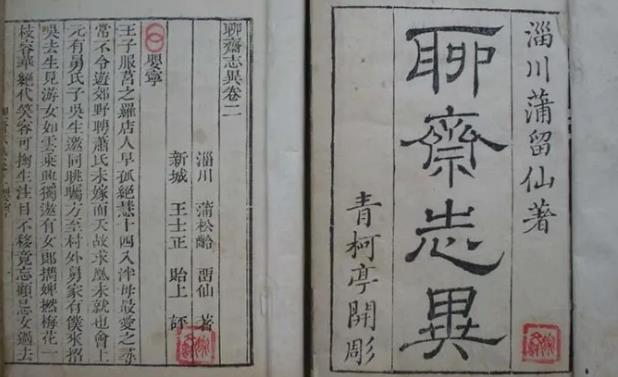 淄川蒲留仙著
聊齋志異
青柯亭開彫
聊齋志異卷二
淄川 蒲松齡 畱仙 著
新城 王士正 貽上 評
嬰寧
王子服莒之羅店人早孤絕慧十四入泮母最愛之尋
常不令遊郊野聘蕭氏未嫁而夭故求凰未就也會上
元有舅氏子吳生邀同眺矚方至村外舅家有僕來招
吳去生見游女如雲乘興獨遨有女郎攜婢撚梅花一
枝容華絕代笑容可掬生注目不移竟忘顧忌女過去